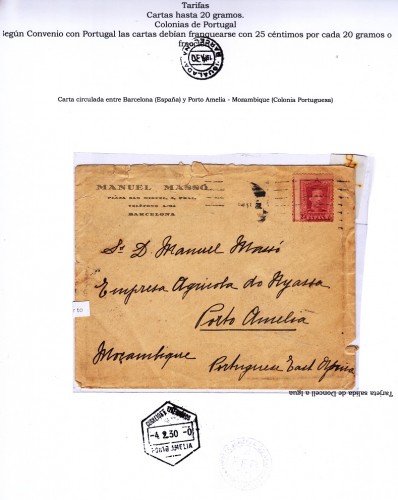 Tarifas
Cartas hasta 20 gramos.
Colonias de Portugal
Según Convenio con Portugal las cartas debían franquearse con 25 céntimos por cada 20 gramos o
IGUALADA
Carta circulada entre Barcelona (España) y Porto Amelia - Mozambique (Colonia Portuguesa)
MANUEL MASSÓ
PLAZA SAN MIGUEL,
BARCELONA
ESPAÑA
Sr. D. Manuel Massó
Empresa Agricola do Nyassa
Porto Amelia
Moçambique Portuguese East Africa
Tarjeta salida de Doncell a Igua
-4.2.30-0
PORTO AMELIA